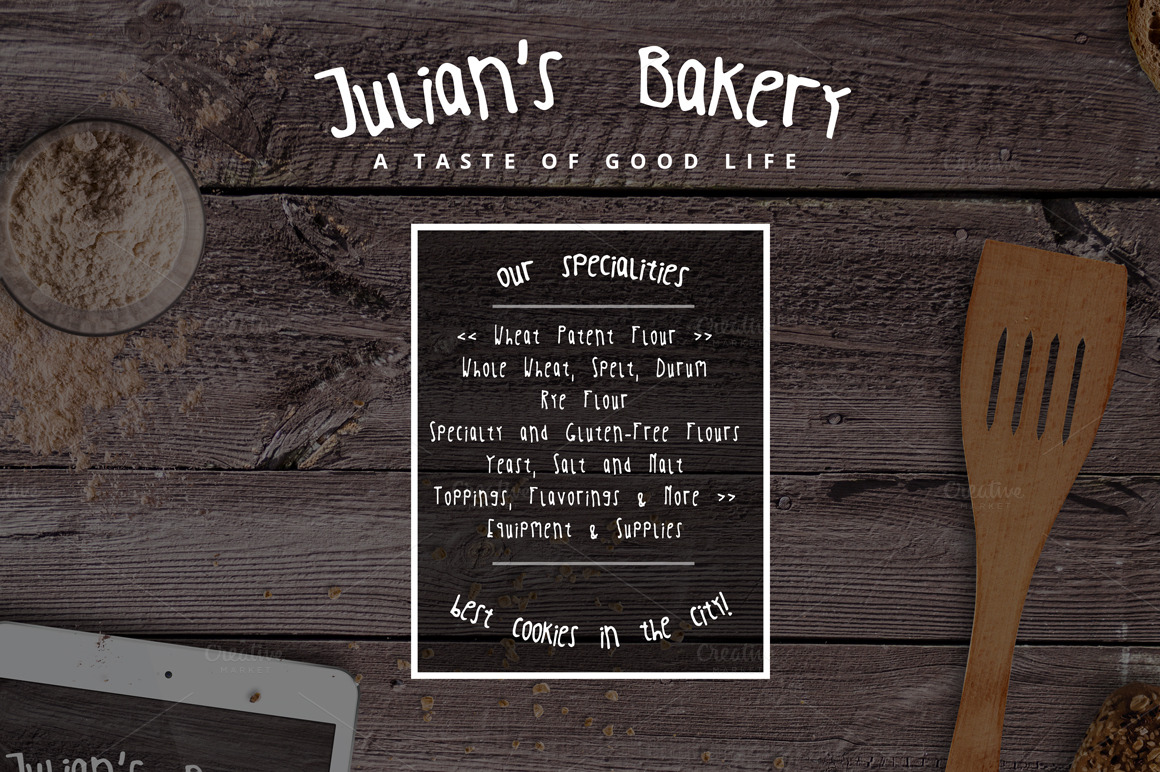 Julian's Bakery
A TASTE OF GOOD LIFE
our specialities
<< Wheat Patent Flour >>
Whole Wheat, Spelt, Durum
Rye Flour
Specialty and Gluten-Free Flours
Yeast, Salt and Malt
Toppings, Flavorings & More >>
Equipment & Supplies
best cookies in the city!
Creative
MARKET
Julian's